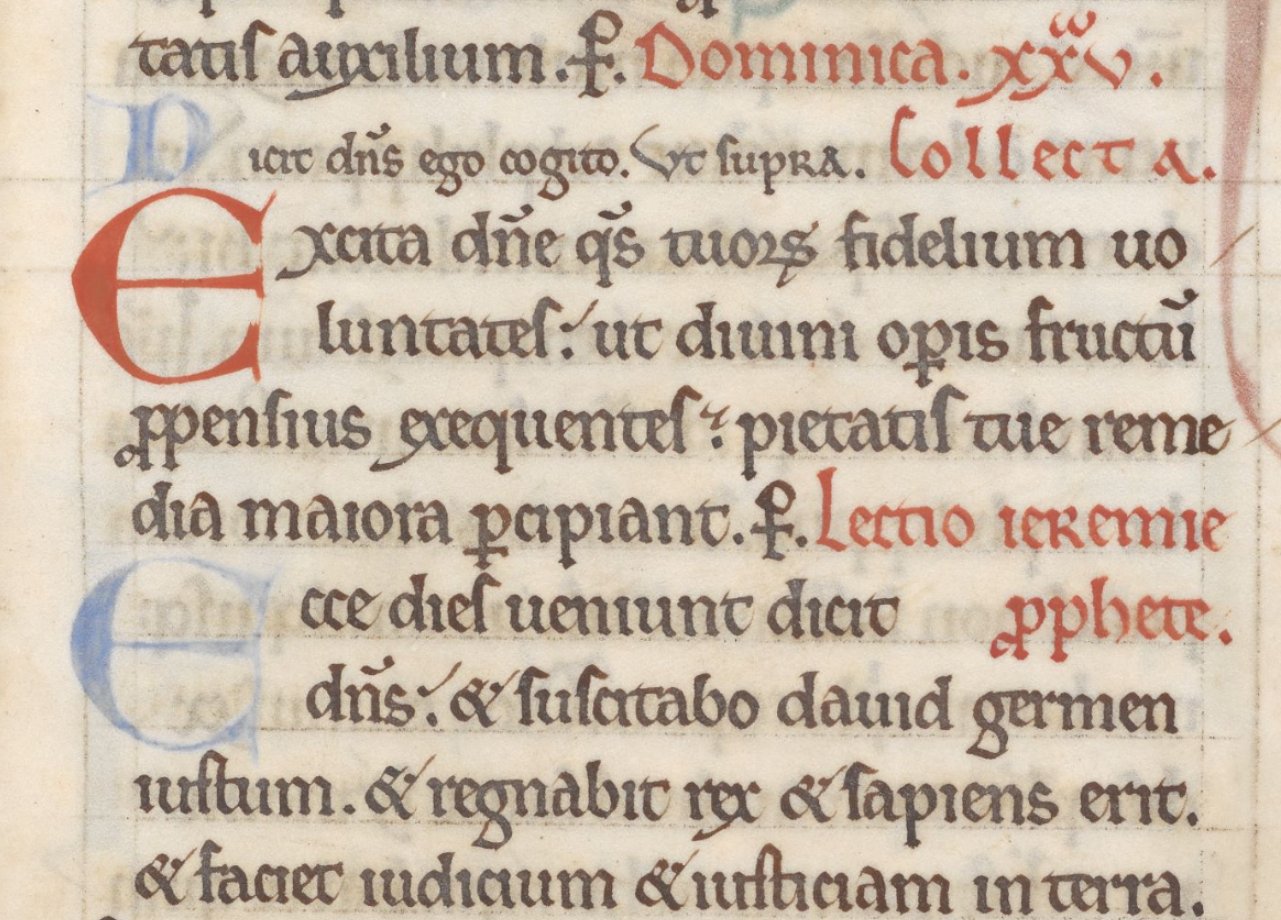 tatis auxilium. P̶. Dominica. xxͧv.
Dicit dn̄s ego cogito. Vt supra. Collecta.
Excita dn̄e qs̄ tuoꝝ fidelium uo
luntates: ut diuini oꝑis fructū
ꝓpensius exequentes: pietatis tue reme
dia maiora ꝑcipiant. P̶. Lectio ieremie
Ecce dies ueniunt dicit ꝓphete.
dn̄s: & suscitabo dauid germen
iustum. & regnabit rex & sapiens erit.
& faciet iudicium & iusticiam in terra.